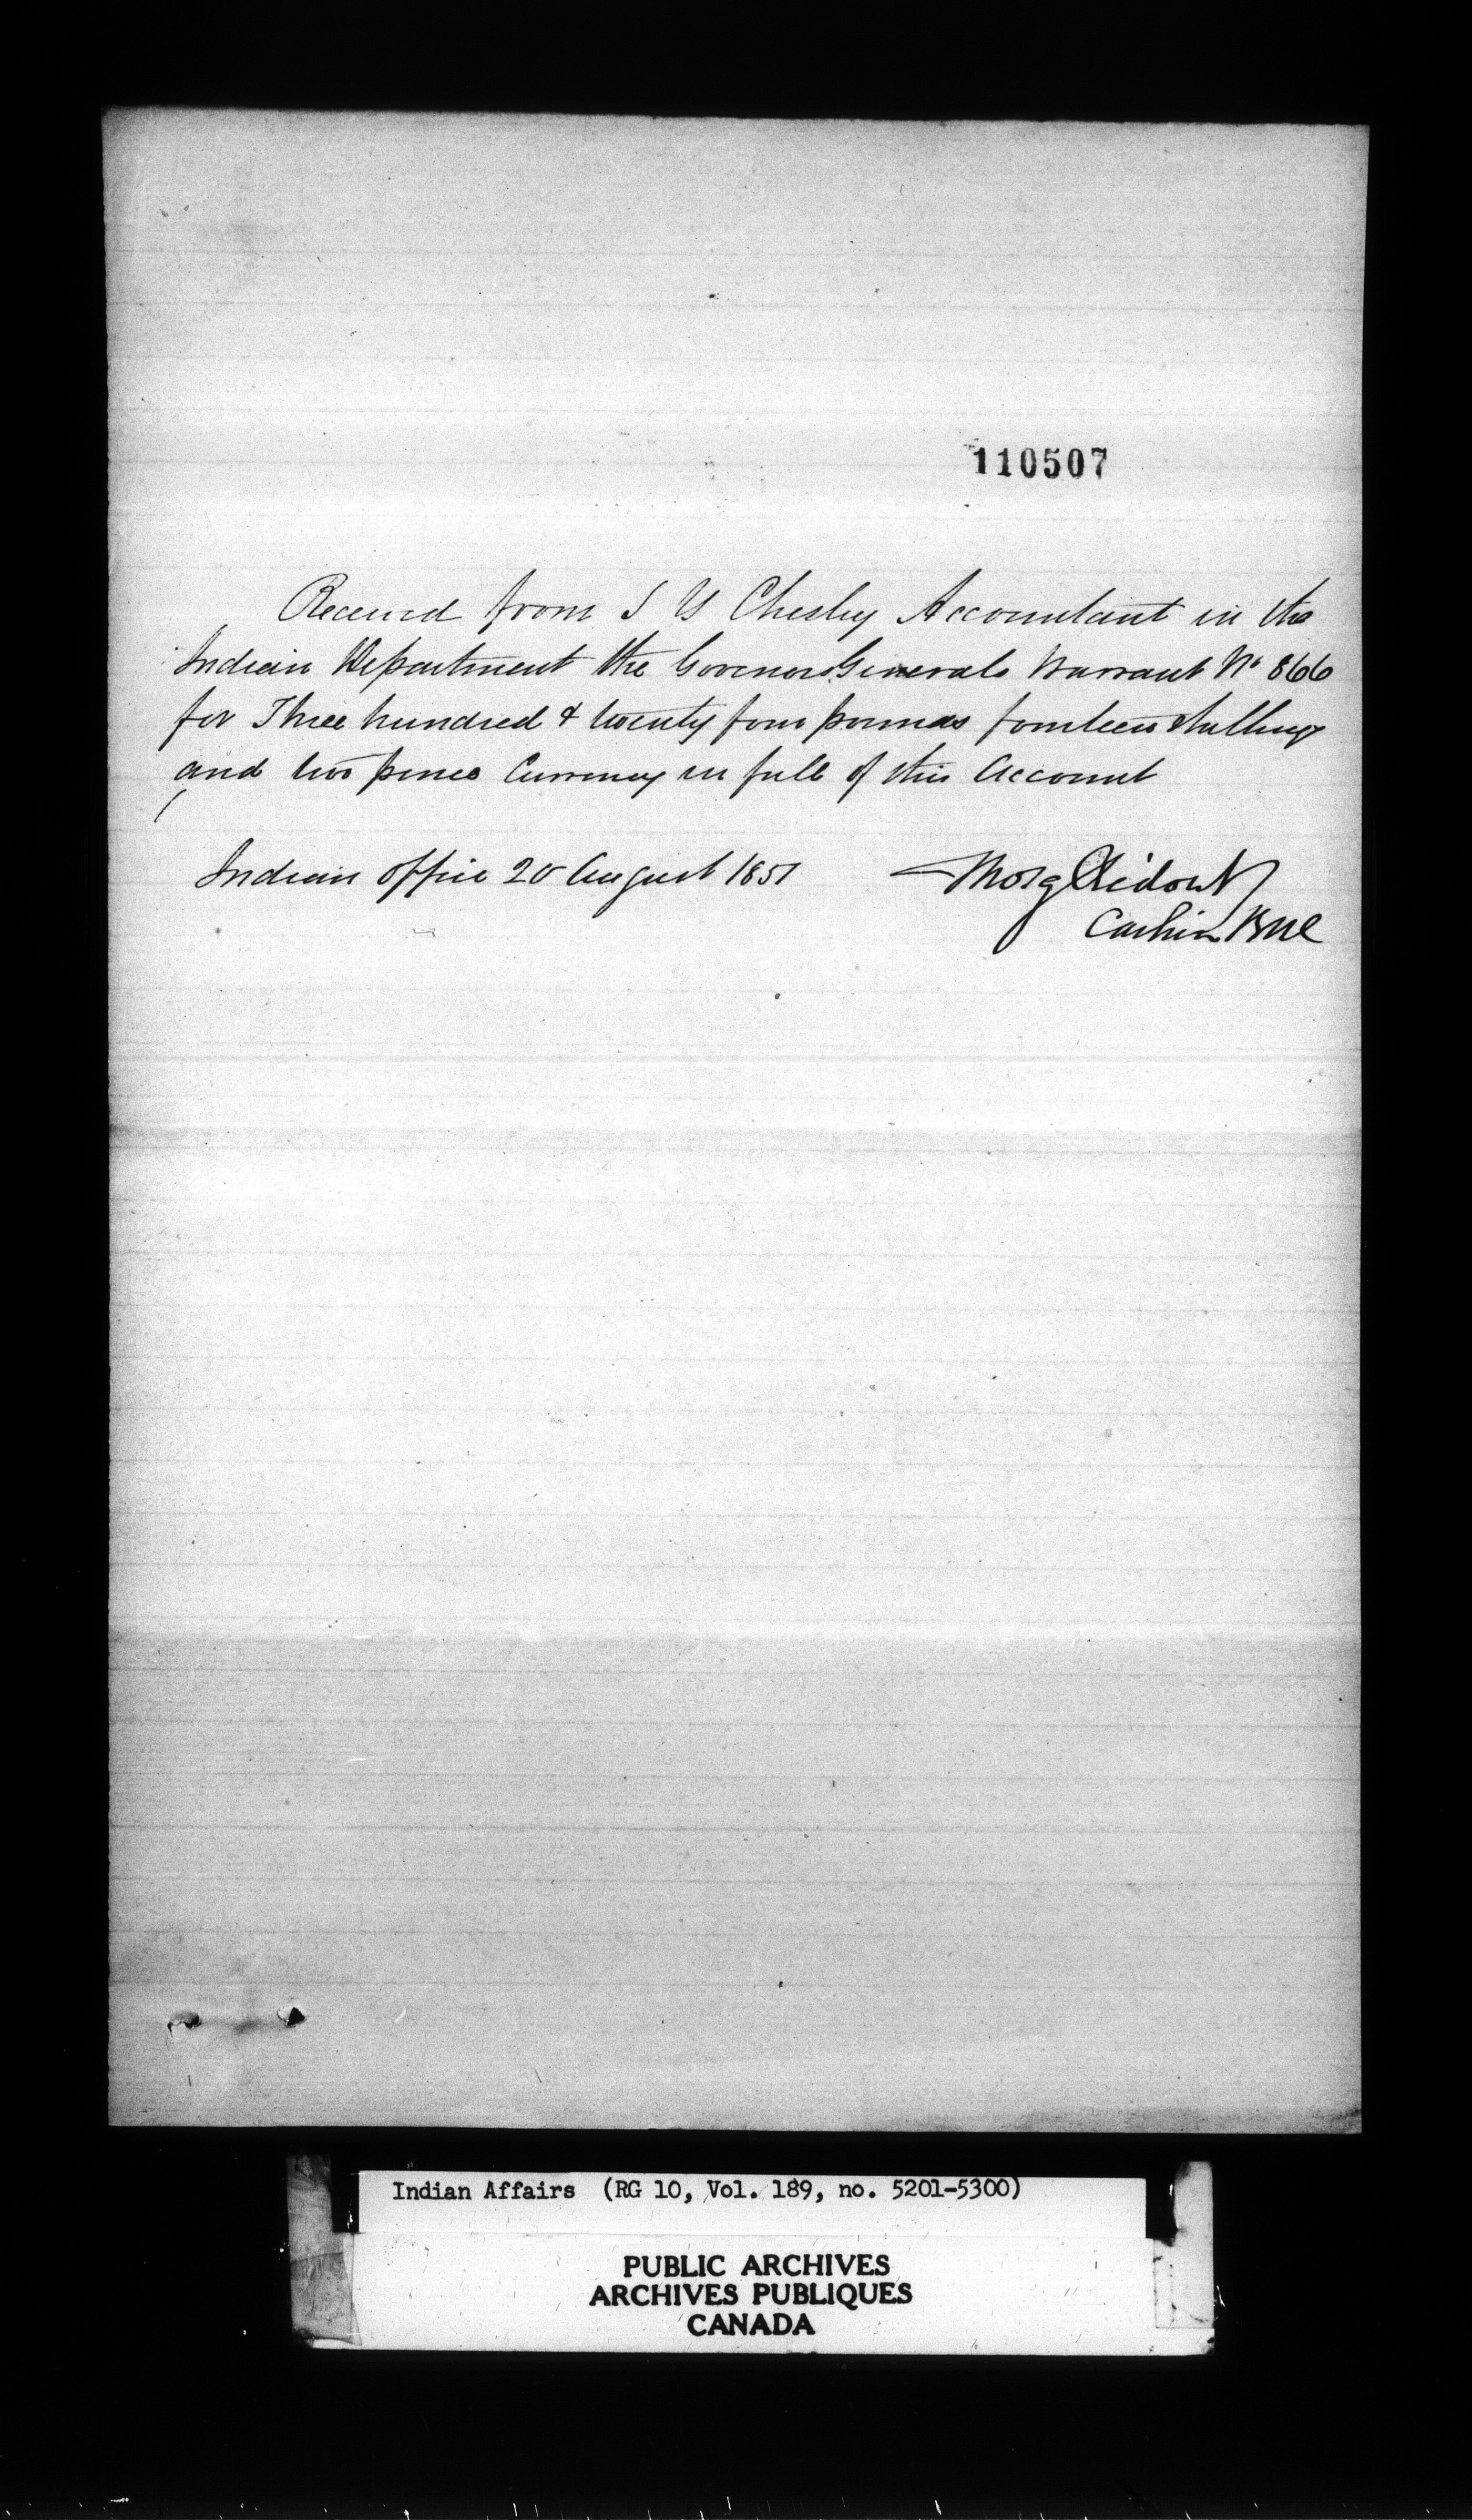 110507
Received from S Y Chesley Accountant in the
Indian Department the Governor Generals Warrant No 866
for Three hundred & twenty four pounds fourteen shillings
and two pence Currency in full of this Account
Indian Office 20 August 1851
Thos G Ridout
Cashier BUC
Indian Affairs (RG 10, Vol. 189, no. 5201-5300)
PUBLIC ARCHIVES
ARCHIVES PUBLIQUES
CANADA